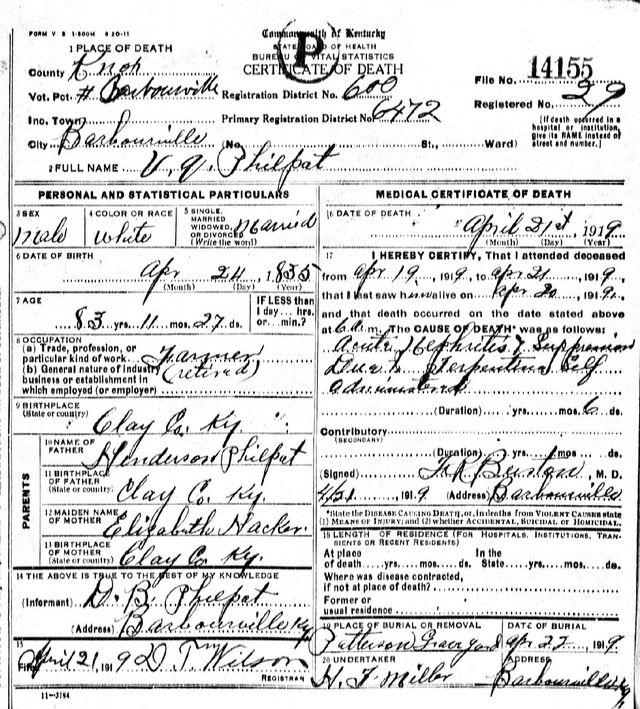 FORM V S 1-500M 6 20-11
Commonwealth of Kentucky
STATE BOARD OF HEALTH
BUREAU OF VITAL STATISTICS
CERTIFICATE OF DEATH
P
1 PLACE OF DEATH
County Knox
Vot. Pct. # Barbourville
Inc. Town
City Barbourville
Registration District No. 600
Primary Registration District No. 6472
(No. St., Ward)
File No. 14155
Registered No. 29
[If death occurred in a hospital or institution, give its NAME instead of street and number.]
2 FULL NAME Philpat
PERSONAL AND STATISTICAL PARTICULARS
3 SEX
Male
4 COLOR OR RACE
White
5 SINGLE, MARRIED WIDOWED, OR DIVORCED (Write the word) Married
6 DATE OF BIRTH
Apr 24, 1835
(Month) (Day) (Year)
7 AGE
83 yrs. 11 mos. 27 ds.
IF LESS than 1 day... hrs. or... min.?
8 OCCUPATION
(a) Trade, profession, or particular kind of work Farmer
(b) General nature of industry business or establishment in which employed (or employer) (retired)
9 BIRTHPLACE
(State or country) Clay Co. Ky.
PARENTS
10 NAME OF FATHER Henderson Philpat
11 BIRTHPLACE OF FATHER (State or country) Clay Co. Ky.
12 MAIDEN NAME OF MOTHER Elizabeth Hacker
13 BIRTHPLACE OF MOTHER (State or country) Clay Co Ky.
14 THE ABOVE IS TRUE TO THE BEST OF MY KNOWLEDGE
(Informant) D. B. Philpat
(Address) Barbourville Ky
15
Filed April 21, 1919 D T M Wilson
REGISTRAR
11-3184
MEDICAL CERTIFICATE OF DEATH
16 DATE OF DEATH
April 21st, 1919
(Month) (Day) (Year)
17 I HEREBY CERTIFY, That I attended deceased
from Apr 19 1919, to Apr 21, 1919,
that I last saw him alive on Apr 20 191
and that death occurred on the date stated above
at 6 a m. The CAUSE OF DEATH* was as follows:
Acute Nephritis & Suppression
Due to Turpentine Self
Administered
(Duration) yrs. mos. 6 ds.
Contributory
(SECONDARY)
(Duration) yrs. mos ds.
(Signed) M. D.
4/21 1919 (Address) Barbourville
*State the DISEASE CAUSING DEATH, or, in deaths from VIOLENT CAUSES state (1) MEANS OF INJURY; and (2) whether ACCIDENTAL, SUICIDAL or HOMICIDAL.
18 LENGTH OF RESIDENCE (FOR HOSPITALS, INSTITUTIONS, TRANSIENTS OR RECENT RESIDENTS)
At place of death yrs. mos. ds. In the State yrs. mos. ds.
Where was disease contracted, if not at place of death?
Former or usual residence
19 PLACE OF BURIAL OR REMOVAL
Patterson Grave yard
DATE OF BURIAL
Apr 22, 1919
20 UNDERTAKER
H. F. Miller
ADDRESS
Barbourville Ky